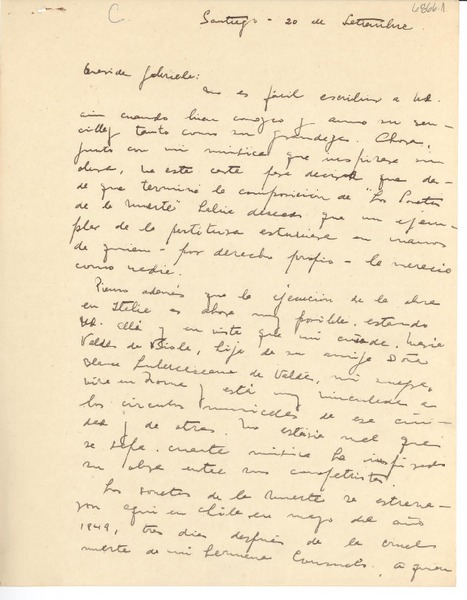 C.
6866.1
Santiago - 20 de Setiembre
Querida Gabriela:
No es fácil escribir a Ud.
aún cuando bien conozco y admiro su sen-
cillez tanto como su grandeza. Ahora,
junto con mi música que inspirase su
obra, va esta carta para decirle que des-
de que terminé la composición de "Los Sonetos
de la Muerte" había deseado que un ejem-
plar de la partitura estuviese en manos
de quien - por derecho propio - la merecía
como nadie.
Pienso además que la ejecución de la obra
en Italia es ahora muy posible, estando
Ud. allá y en vista que mi cuñada, María
Valdés de hija de su amiga Doña
Blanca Subercaseaux de Valdés, mi suegra,
vive en Roma y está muy vinculada a
los círculos musicales de esa ciu-
dad y de otras. No estaría mal que
se sepa cuanta música ha inspirado
su obra entre sus compatriotas.
Los Sonetos de la Muerte se estrena-
ron aquí en Chile en mayo del año
1949, tres días después de la cruel
muerte de mi hermana Consuelo, a quien